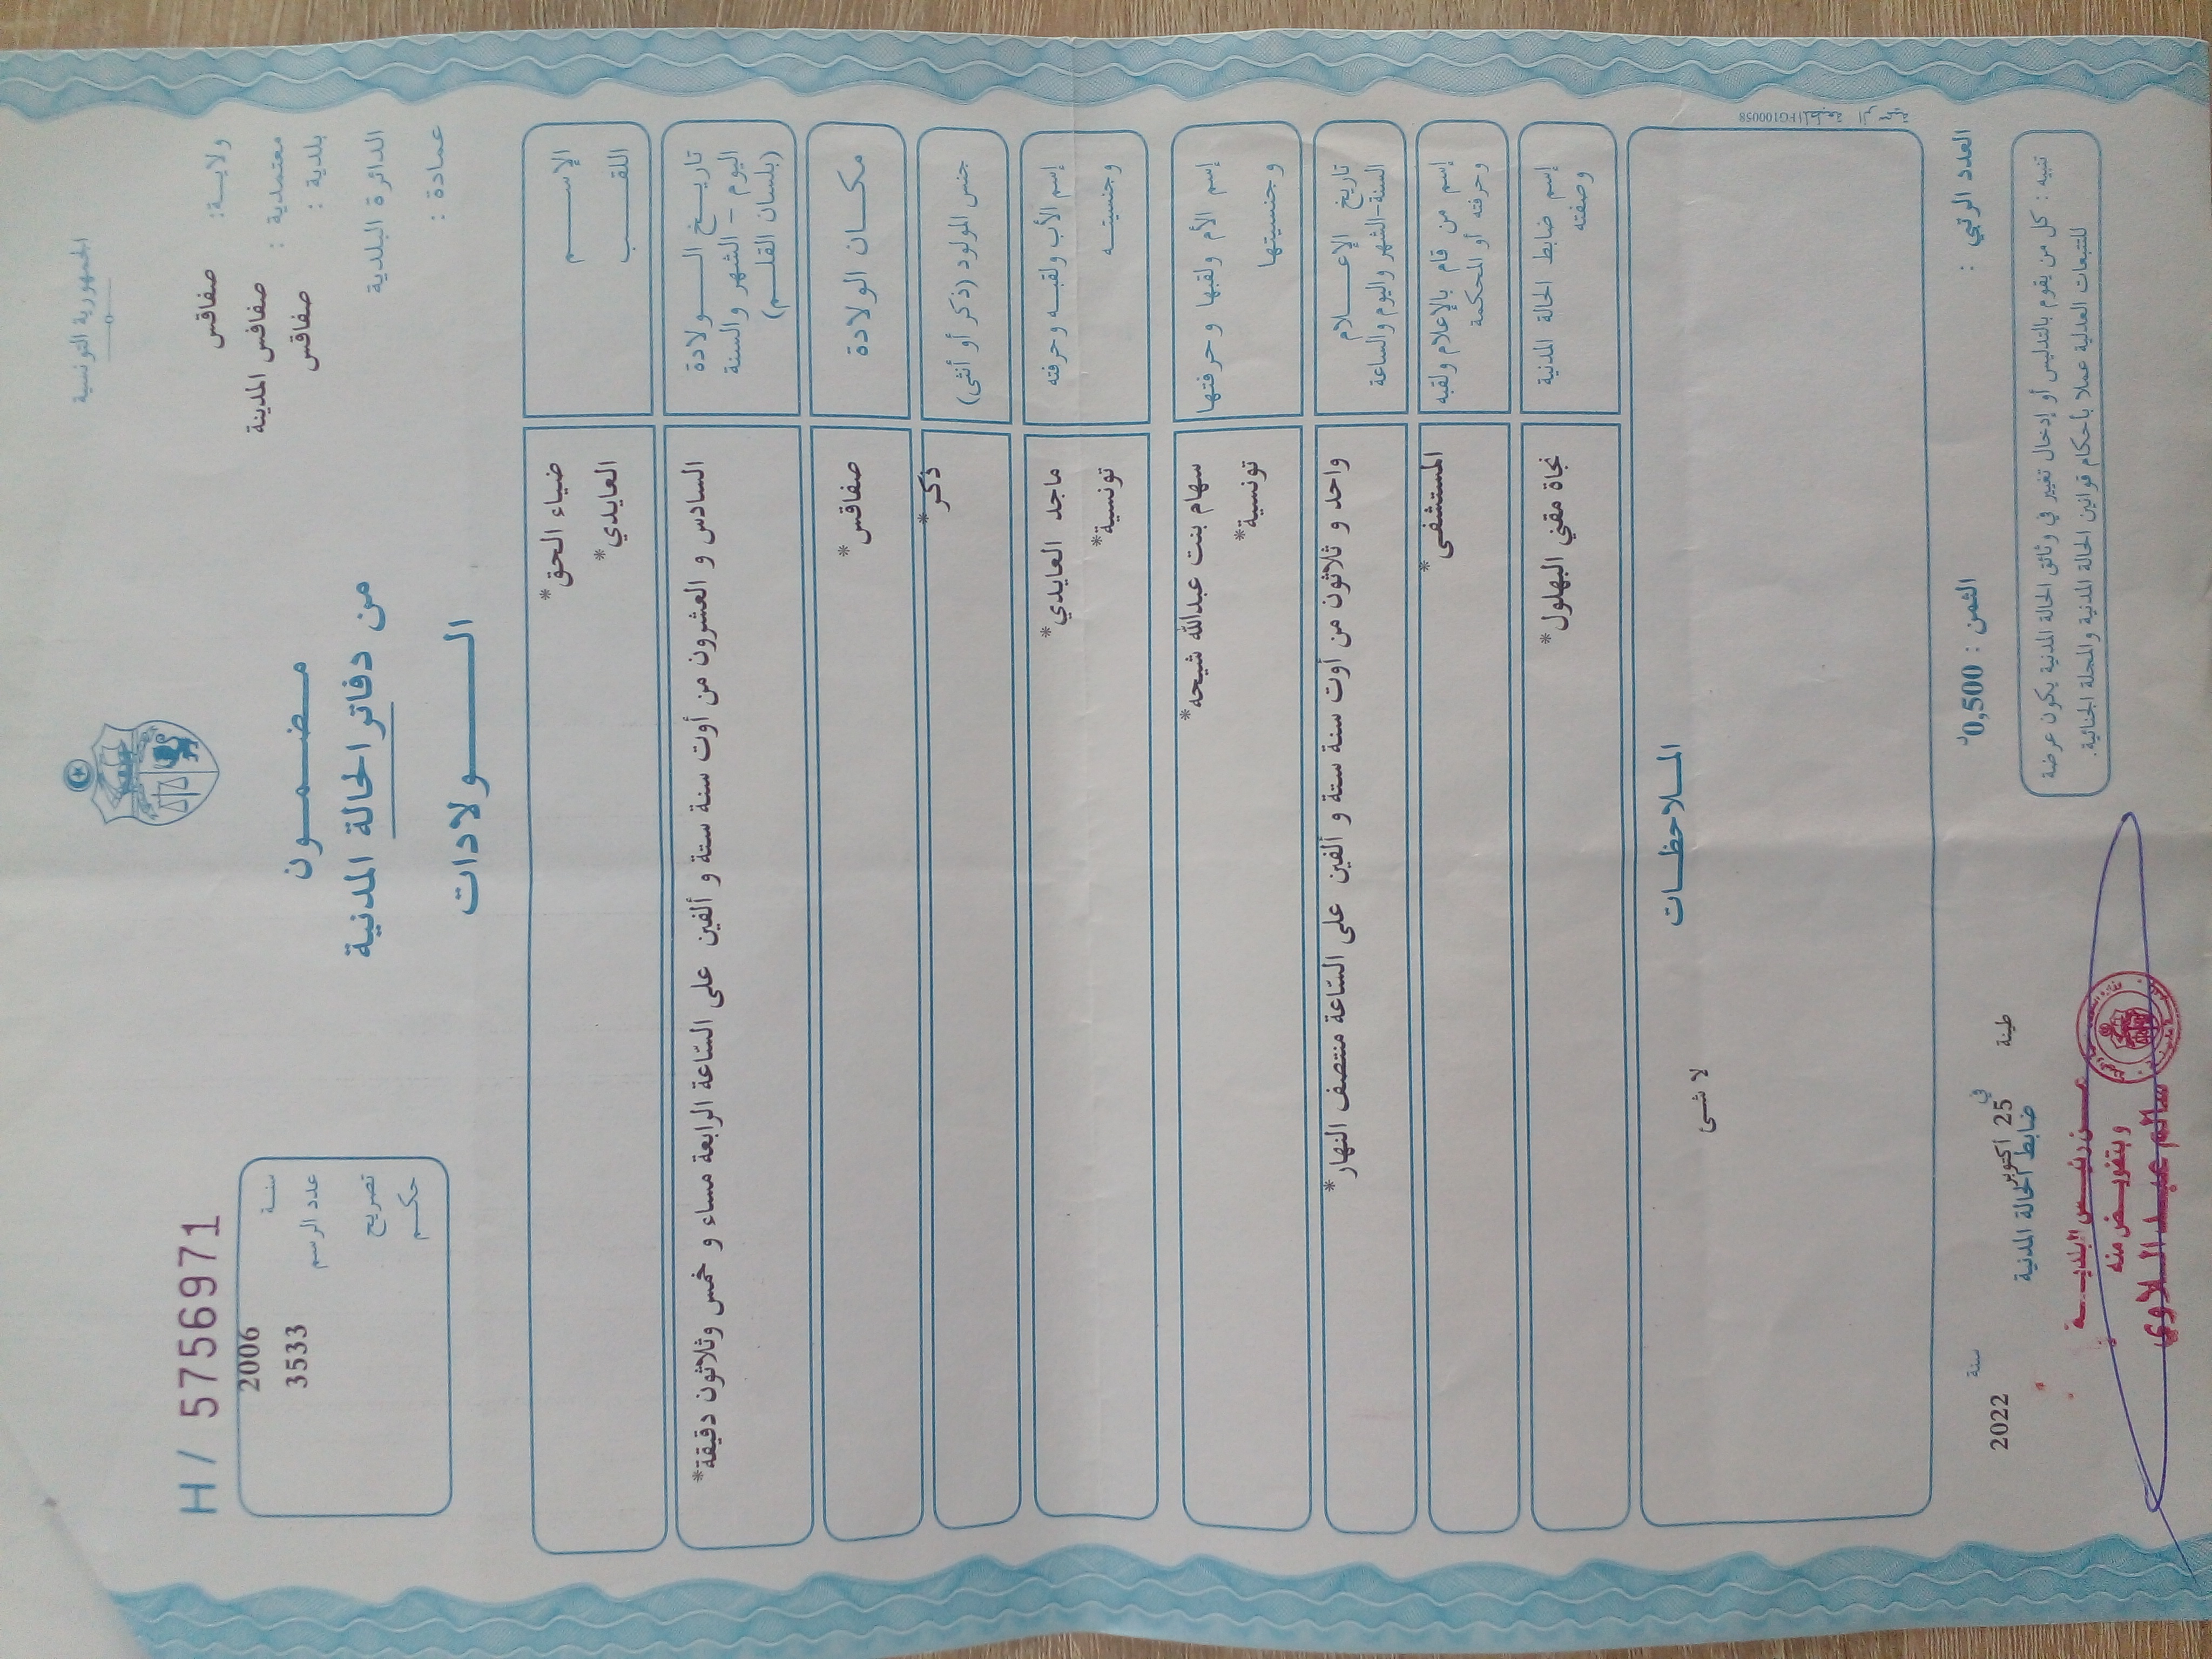 الجمهورية التونسية
ولاية: صفاقس
معتمدية : صفاقس المدينة
بلدية : صفاقس
الدائرة البلدية
عمادة :
مضمون
من دفاتر الحالة المدنية
الولادات
H / 5756971
سنة 2006
عدد الرسم 3533
تصريح
حكم
الإسم ضياء الحق*
اللقب العايدي*
تاريخ الولادة
اليوم - الشهر والسنة
(بلسان القلم)
السادس و العشرون من أوت سنة ستة و ألفين على السّاعة الرابعة مساء و خمس وثلاثون دقيقة*
مكان الولادة صفاقس*
جنس المولود (ذكر أو أنثى) ذكر*
إسم الأب ولقبه وحرفته ماجد العايدي*
وجنسيته تونسية*
إسم الأم ولقبها وحرفتها سهام بنت عبدالله شيحه*
وجنسيتها تونسية*
تاريخ الإعلام
السنة-الشهر واليوم والساعة
واحد و ثلاثون من أوت سنة ستة و ألفين على السّاعة منتصف النهار*
إسم من قام بالإعلام ولقبه
وحرفته أو المحكمة
المستشفى*
إسم ضابط الحالة المدنية
وصفته
نجاة مقني البهلول*
الملاحظات
لا شى
العدد الرتبي :
الثمن : 0,500د
طينة في 25 اكتوبر سنة 2022
ضابط الحالة المدنية
تنبيه : كل من يقوم بالتدليس أو إدخال تغيير في وثائق الحالة المدنية يكون عرضة
للتتبعات العدلية عملا بأحكام قوانين الحالة المدنية والمجلة الجنائية.
عن رئيس البلدية
وبتفويض منه
سالم عبد اللاوي